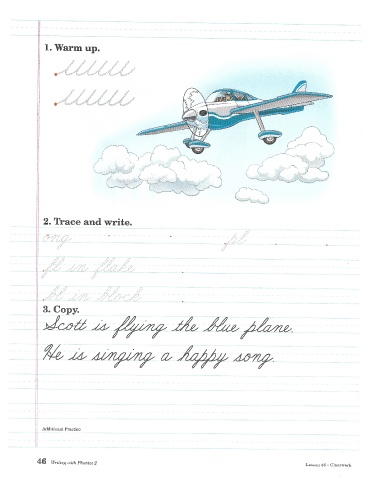 1. Warm up.
uuuu
uuuu
2. Trace and write.
ong pl
fl in flake
bl in block
3. Copy.
Scott is flying the blue plane.
He is singing a happy song.
Additional Practice
46 Writing with Phonics 2
Lesson 46 - Classwork